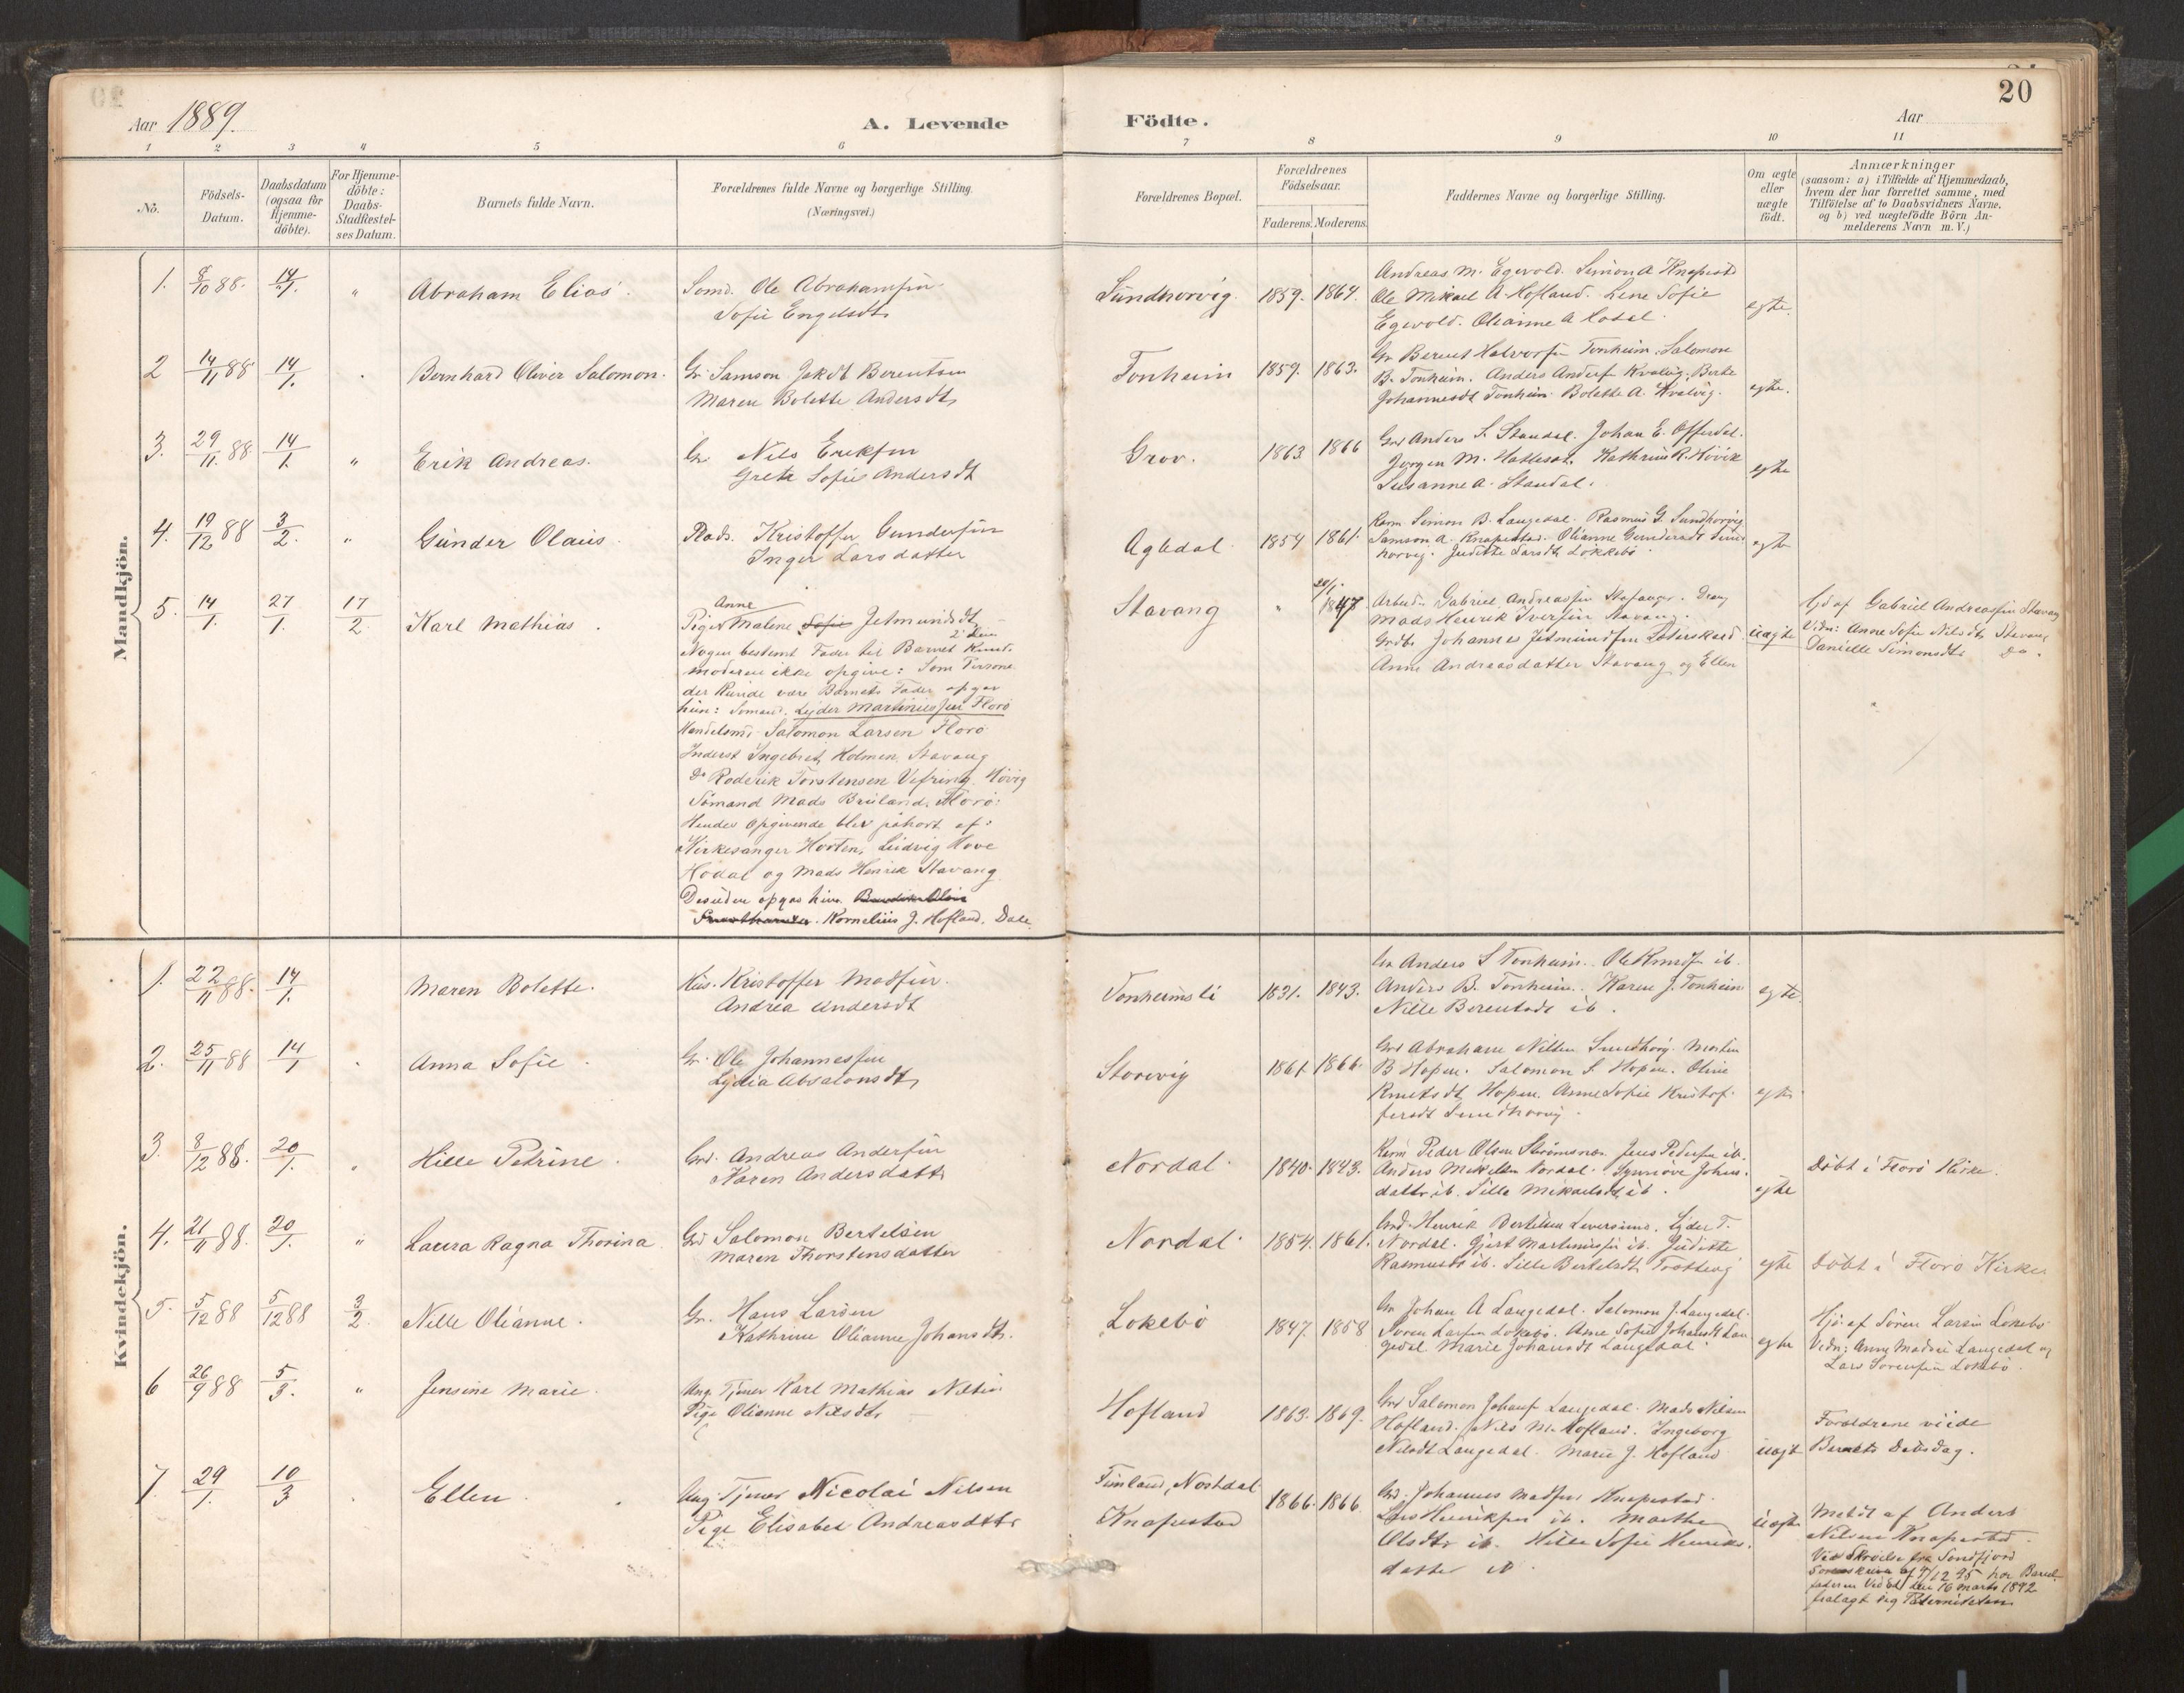 20
Aar 1889.
A. Levende
Födte.
Aar
1 2 3 4 5 6 7 8 9 10 11
No.
Födsels-Datum.
Daabsdatum (ogsaa for Hjemme-döbte).
For Hjemme-döbte: Daabs-Stadfæstel-ses Datum.
Barnets fulde Navn.
Forældrenes fulde Navne og borgerlige Stilling.
(Næringsvei.)
Forældrenes Bopæl.
Forældrenes Födselsaar.
Faderens. Moderens.
Faddernes Navne og borgerlige Stilling.
Om ægte eller uægte födt.
Anmærkninger
(saasom: a) i Tilfælde af Hjemmedaab,
hvem der har forrettet samme, med
Tilföielse af to Daabsvidners Navne,
og b) ved uægtefödte Börn An-
melderens Navn m. V.)
Mandkjön.
1. 8/10 88. 14/1. " Abraham Elias.
Somd. Ole Abrahamsen.
Sofie Engelsdt
Sundhorvig. 1859. 1864.
Andreas M. Egevold. Simon A Knapestd
Ole Mikael A. Hofland. Lene Sofie
Egevold. Olianne A Hodal.
egte.
2 14/11 88 14/1. Bernhard Oliver Salomon.
Gr. Samson Jakdt Berentsen
Maren Bolette Andersdt
Tonheim 1859. 1863.
Gr Berent Halvorsen Tonheim. Salomon
B. Tonheim. Anders Andersen Kvalvig. Berte
Johannesdt Tonheim. Bolette A. Kvalvig.
egte.
3. 29/11. 88 14/1. " Erik Andreas.
Gr. Nils Eriksen
Grete Sofie Andersdt
Grov. 1863 1866
Grd Anders S. Standal. Johan E. Offerdal.
Jørgen M. Hatleset. Kathrine R. Hovik
Susanne A. Standal.
egte
4. 19/12 88 3/2. " Gunder Olaus.
Plads. Kristoffer Gundersen
Inger Larsdatter
Agledal. 1854 1861.
Simon B. Langedal. Rasmus G. Sundhorvig
Samson A. Knapestad. Olianne Gundersdt Sund
horvig. Juditte Larsdt Lokkebø.
egte
5. 14/1. 27/1. 17/2. Karl Mathias.
Anne
Pige Malene Sofie Jetmundsdt
Nogen bestemt Fader til Barnet kunde
moderen ikke opgive: Som Persone
der kunde være Barnets Fader opgav
hun: Somand. Lyder Martiniussen Florø
Handelsmd Salomon Larsen Florø
Inderst Ingebret Holmen, Stavang
Do Roderik Torstensen Vefring Hovig
Sömand Mads Bruland, Florø.
Hendes Opgivende blev påhørt af:
Kirkesanger Horten, Ludvig Hove
Hodal og Mads Henrik Stavang
Desuden opgav hun
Kornelius J. Hofland. Dale
Stavang " 20/1. 1847.
Arbeid. Gabriel Andreassen Stavang. Dreng
Mads Henrik Iversen Stavang.
Johannes Jetmundsen
Anne Andreasdatter Stavang og Ellen
uægte
Hjd af Gabriel Andreassen Stavang
Vidn: Anne Sofie Nilsdt Stavang
Danielle Simonsdt do.
Kvindekjön.
1. 22/11 88. 14/1. Maren Bolette.
Hus. Kristoffer Madsen.
Andrea Andersdt
Tonheimsli 1831. 1843.
Gr Anders S Tonheim. Ole Knudsn ib.
Anders B. Tonheim. Karen J. Tonheim
Nille Berentsdt ib.
egte.
2. 25/11 88 14/1 Anna Sofie.
Gr. Ole Johannessen
Lydia Absalonsdt
Storevig 1861. 1866.
Grd Abraham Nilsen Sundhovg. Morten
B Hopen. Salomon S. Hopen. Oline
Knutsdt Hopen. Anne Sofie Kristof-
fersdt Sundhorvig.
egte
3. 8/12 88. 20/1. " Hille Petrine.
Grd. Andreas Andersen
Karen Andersdatt
Nordal. 1840. 1843.
Peder Olsen Strömsnes. Jens Pedersen ib.
Anders Mikkelsen Nordal. Synnöve Johns-
datter ib. Sille Mikaelsdt ib.
egte
Döbt i Florö Kirke.
4. 21/11 88. 20/1. " Laura Ragna Thorina
Grd Salomon Bertelsen
Maren Thorstensdatter
Nordal. 1854. 1861.
Grd. Henrik Bertelsen Leversund. Lyder T.
Nordal. Gjert Martinussen ib. Juditte
Rasmusdt ib. Sille Bertelsdt
egte
Döbt i Florö Kirke.
5. 5/12 88 5/12 88 3/2. Nille Olianne.
Gr. Hans Larsen
Kathrine Olianne Johansdt.
Lokebö 1847. 1858
Gr Johan A Langedal. Salomon J. Langedal.
Sören Larsen Lokebø. Anne Sofie Johansdt Lan
gedal. Marie Johansdt Langedal.
egte
Hjd. af Sören Larsen Lokebö
Vidn: Anne Madsdt Langedal og
Lars Sorensen Lokebö.
6 26/9 88 5/3. " Jensine Marie.
Ung. Tjener Karl Mathias Nilsen
Pige Olianne Nilsdtr
Hofland 1863. 1869.
Grd Salomon Johans Langedal. Mads Nilsen
Hofland. Nils M. Hofland. Ingeborg
Nilsdt Langedal. Marie J. Hofland
uægt
Forældrene viede
Barnets Dåbsdag.
7. 29/1. 10/3 Ellen.
Ung. Tjener Nicolai Nilsen
Pige Elisabet Andreasdtr
Timland, Nostdal
Knapestad
1866. 1866
Grd. Johannes Madsen Knapestad.
Lars Henriksen ib. Marthe
Olsdtr ib. Hille Sofie Henriks-
datter ib.
uægte
Meldt af Anders
Nilsen Knapestad.
Ved Skrivelse fra Söndfjord
Sorenskriver af 4/12 95 har Barne-
faderen ved Ed den 16 Marts 1892
fralagt sig Paterniteten